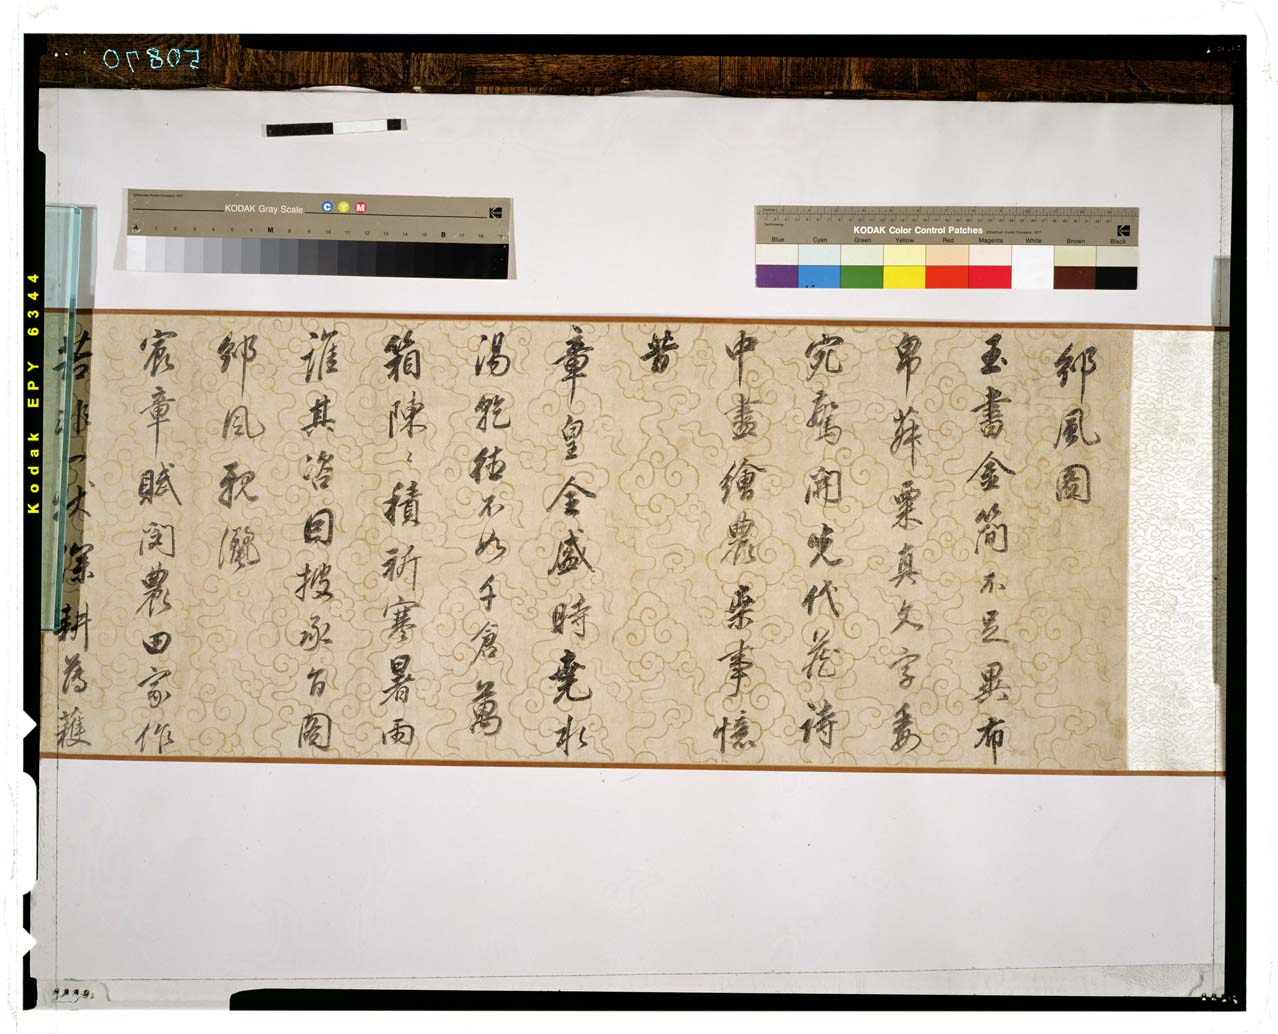 KODAK Gray Scale
C Y M
A 1 2 3 4 5 6 M 8 9 10 11 12 13 14 15 B 17 18 19
KODAK Color Control Patches
Blue Cyan Green Yellow Red Magenta White Brown Black
Kodak EPY 6344
豳風圖
玉書金簡不足異布
帛菽粟真文字委
宛驚開晚代花詩
中畫繪農桑事憶
昔
章皇全盛時堯水
湯乾德不如千倉萬
箱陳陳積祈寒暑雨
誰其咨因披承旨圖
豳風歌灑
宸章賦閔農田家作
苦非一狀深耕為穫